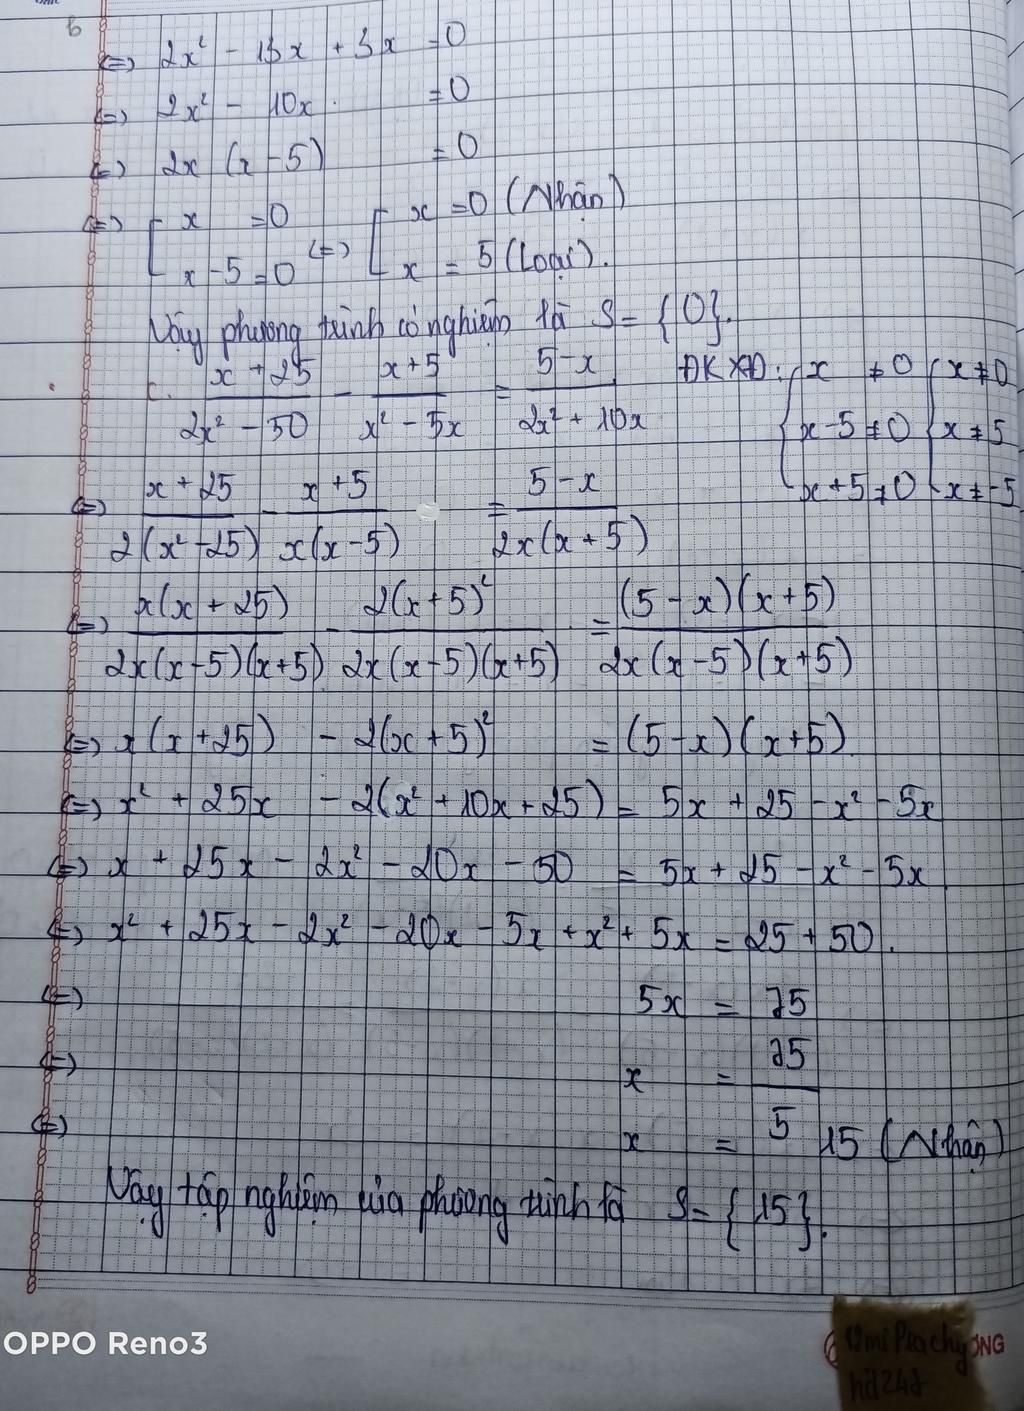 b
⇔ 2x² - 13x + 3x = 0
⇔ 2x² - 10x = 0
⇔ 2x (x - 5) = 0
⇔ [ x = 0 ⇔ [ x = 0 (Nhận)
x - 5 = 0 x = 5 (Loại).
Vậy phương trình có nghiệm là S = {0}.
c. (x + 25)/(2x² - 50) - (x + 5)/(x² - 5x) = (5 - x)/(2x² + 10x) ĐKXĐ: { x ≠ 0 { x ≠ 0
x - 5 ≠ 0 x ≠ 5
x + 5 ≠ 0 x ≠ -5
⇔ (x + 25)/(2(x² - 25)) - (x + 5)/(x(x - 5)) = (5 - x)/(2x(x + 5))
⇔ x(x + 25)/(2x(x - 5)(x + 5)) - 2(x + 5)²/(2x(x - 5)(x + 5)) = (5 - x)(x + 5)/(2x(x - 5)(x + 5))
⇔ x(x + 25) - 2(x + 5)² = (5 - x)(x + 5)
⇔ x² + 25x - 2(x² + 10x + 25) = 5x + 25 - x² - 5x
⇔ x + 25x - 2x² - 20x - 50 = 5x + 25 - x² - 5x
⇔ x² + 25x - 2x² - 20x - 5x + x² + 5x = 25 + 50.
⇔ 5x = 75
⇔ x = 75/5
⇔ x = 15 (Nhận)
Vậy tập nghiệm của phương trình là S = {15}.
OPPO Reno3